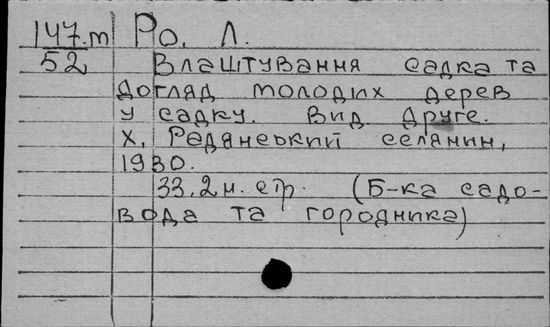 147.m Ро, Л.
52 Влаштування садка та
догляд молодих дерев
у садку. Вид. друге.
Х, Радянський селянин,
1930.
33, 2 н. стр. (Б-ка садо-
вода та городника)